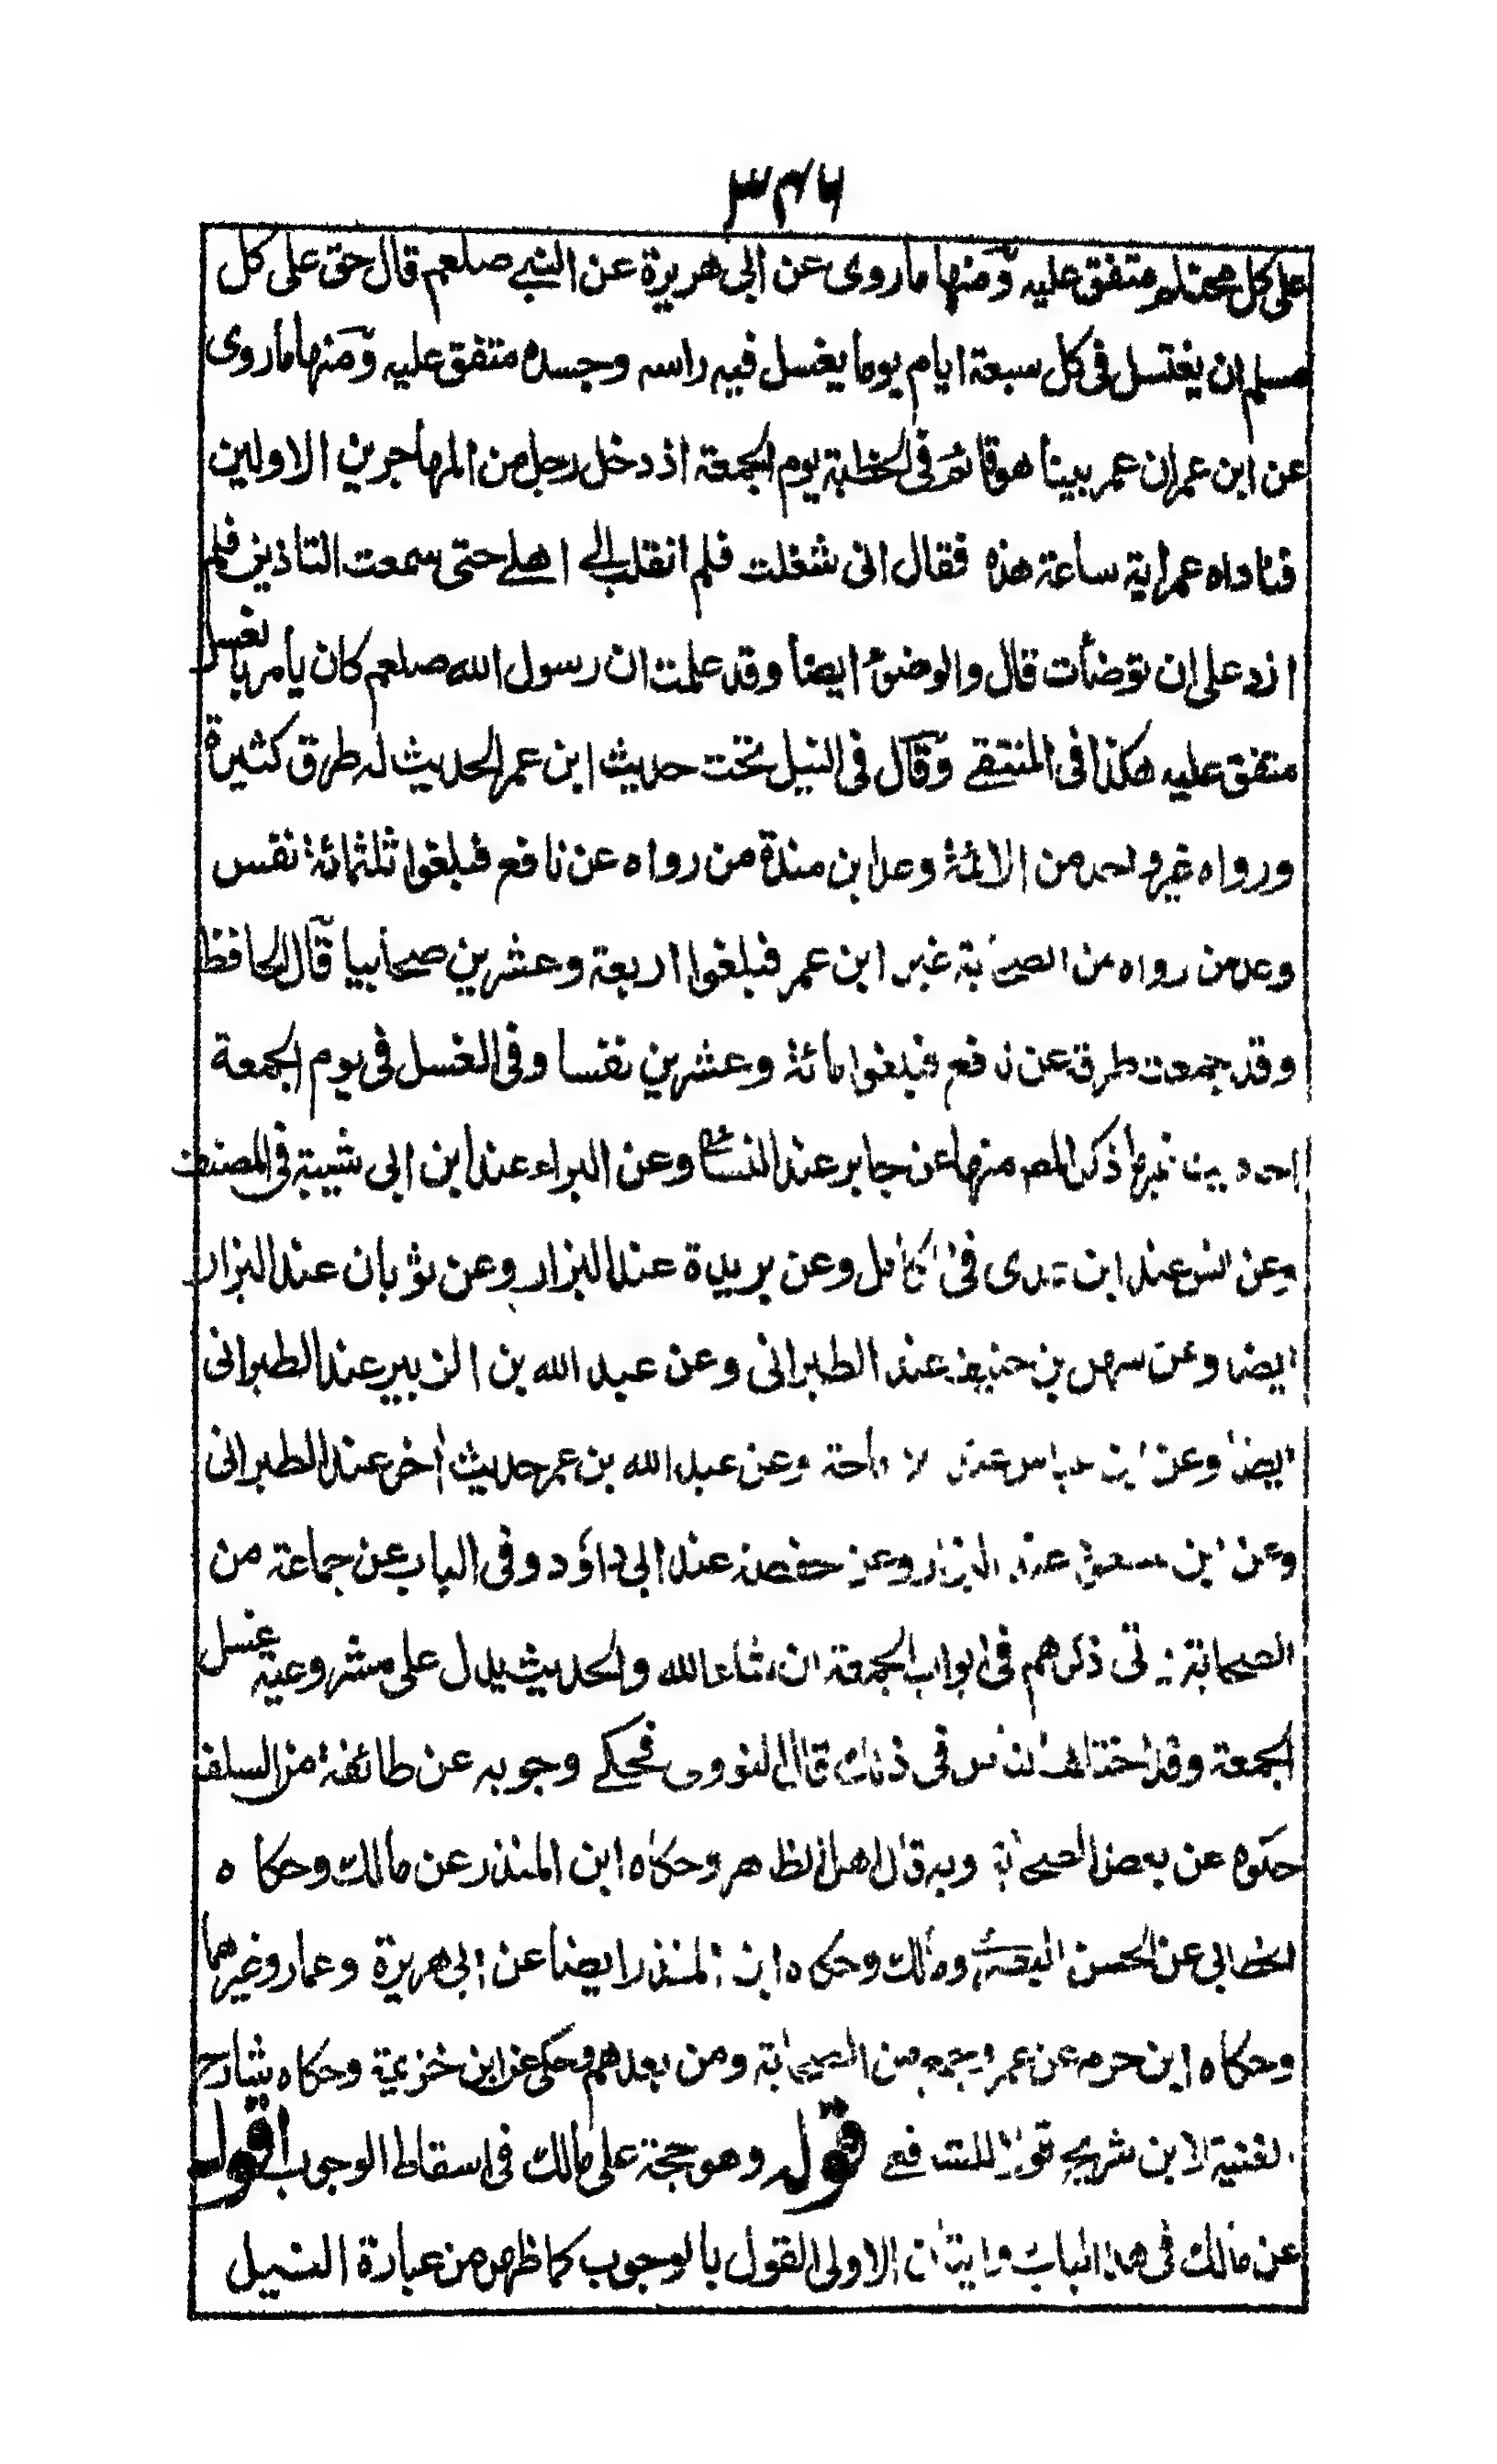 ٣٤٦
على كل محتلم متفق عليه ومنها ماروى عن ابى هريرة عن النبي صلعم قال حق على كل
مسلم ان يغتسل فى كل سبعة ايام يوما يغسل فيه راسه وجسده متفق عليه ومنها ماروى
عن ابن عمران عمر بينا هو قائم فى الخطبة يوم الجمعة اذ دخل رجل من المهاجرين الاولين
فناداه عمر اية ساعة هذه فقال انى شغلت فلم انقلب الى اهلى حتى سمعت التاذين فلم
ازد على ان توضأت قال والوضوء ايضا وقد علمت ان رسول الله صلعم كان يأمر بالغسل
متفق عليه هكذا فى المنتقى وقال فى النيل تحت حديث ابن عمر الحديث له طرق كثيرة
ورواه غير واحد من الائمة وعد ابن مندة من رواه عن نافع فبلغوا ثلثمائة نفس
وعد من رواه من الصحابة غير ابن عمر فبلغوا اربعة وعشرين صحابيا قال الحافظ
وقد جمعت طرق عن نافع فبلغوا مائة وعشرين نفسا وفى الغسل فى يوم الجمعة
احاديث غير ما ذكر المص منها عن جابر عند النسائى وعن البراء عند ابن ابى شيبة فى المصنف
وعن انس عند ابن عدى فى الكامل وعن بريدة عند البزار وعن ثوبان عند البزار
ايضا وعن سهل بن حنيف عند الطبرانى وعن عبد الله بن الزبير عند الطبرانى
ايضا وعن ابن عباس عند ابن ماجة وعن عبد الله بن عمر حديث أخر عند الطبرانى
وعن ابن مسعود عند البزار وعن حفصة عند ابى داؤد وفى الباب عن جماعة من
الصحابة يأتى ذكرهم فى ابواب الجمعة ان شاء الله والحديث يدل على مشروعية غسل
الجمعة وقد اختلف الناس فى ذلك قال النووى فحكى وجوبه عن طائفة من السلف
حكوه عن بعض الصحابة وبه قال اهل الظاهر وحكاه ابن المنذر عن مالك وحكاه
الخطابى عن الحسن البصرى ومالك وحكاه ابن المنذر ايضا عن ابى هريرة وعمار وغيرهما
وحكاه ابن حزم عن عمر وجمع من الصحابة ومن بعدهم وحكى عن ابن خزيمة وحكاه شارح
الغنية لابن شريج قولا للشافعى قوله وهو حجة على مالك فى اسقاط الوجوب اقول
عن مالك فى هذا الباب روايتان الاولى القول بالوجوب كما ظهر من عبارة النيل